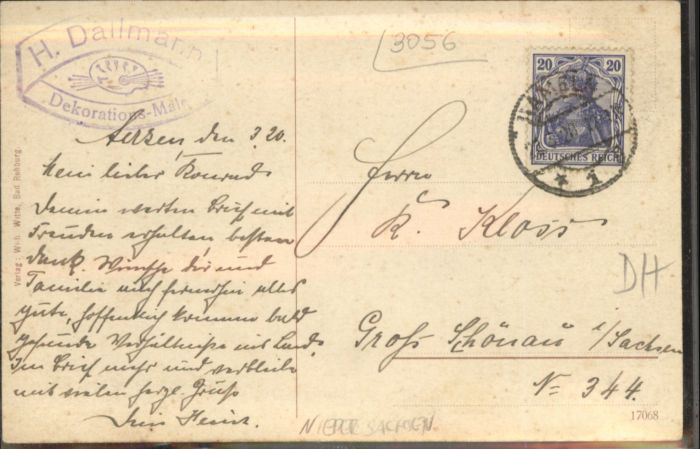 H. Dallmann
Dekorations-Maler
Aerzen, den 3.20.
Mein lieber Konrad
Deinen werten Brief mit
Freuden erhalten, besten
Dank. Wünsche dir und
Familie auch fernerhin alles
gute, hoffentlich kommen bald
gesunde Verhältnisse ins Land.
Im Brief mehr und verbleibe
mit vielen herzl. Gruß
Dein Heinr.
Verlag: Wilh. Witte, Bad Rehburg.
3056
20 20
DEUTSCHES REICH
HAMELN
* 1
Herrn
K. Kloss
DH
Groß Schönau i/Sachsen
No 344.
17068
NIEDERSACHSEN